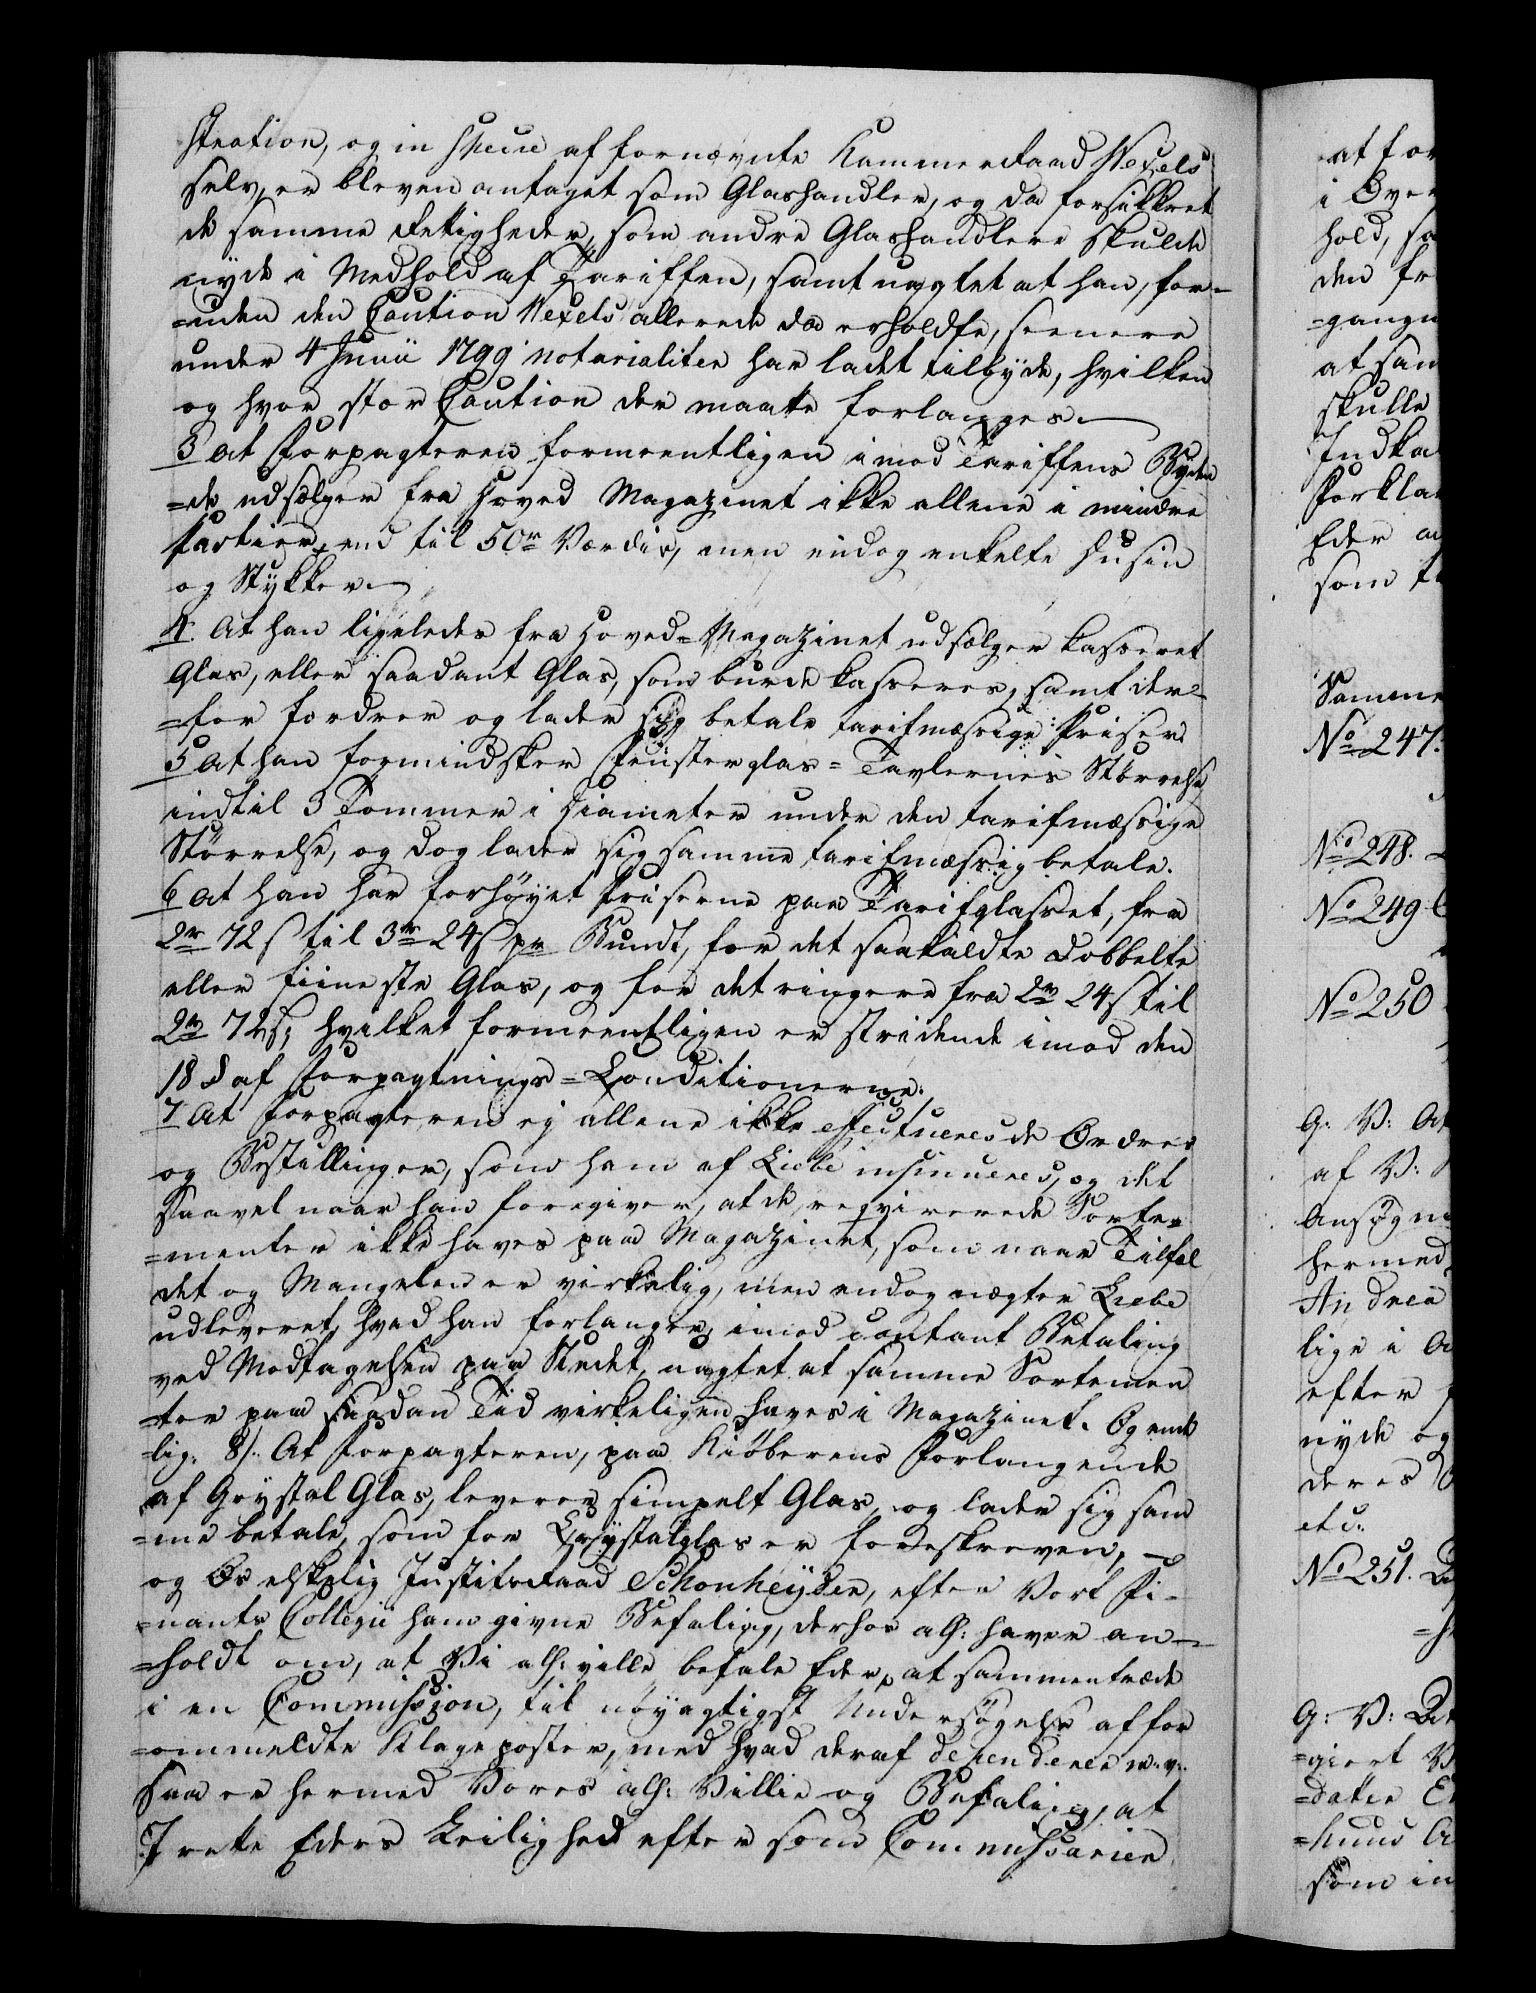 stration, og in specie af fornævnte Kammerraad Wexels
selv, er bleven antaget som Glashandler, og da forsikkret
de samme Rettigheder, som andre Glashandlere skulde
nyde i Medhold af Tariffen, samt uagtet at han, for-
=uden den Caution Wexels allerede da erholdte, seenere
under 4 Junii 1799 notarialiter har ladet tilbyde, hvilken
og hvor stor Caution der maatte forlanges.
3 At Forpagteren formeentligen imod Tariffens Byden
=de udsælger fra Hoved Magazinet ikke allene i mindre
Partier, end til 50r Værdie, men endog enkelte Dusin
og Stykker.
4. At han ligeledes fra Hoved=Magazinet udsælger kasseret
Glas, eller saadant Glas, som burde kasseres, samt der-
=for fordrer og lader sig betale tarifmæssige Priser.
5 At han formindsker Fensterglas=Tavlernes Størrelse
indtil 3 Tommer i Diameter under den tarifmæssige
Størrelse, og dog lader sig samme tarifmæssig betale.
6 At han har forhøyet Priserne paa Tarifglasset, fra
2r 72 s til 3r 24 s pr Bundt, for det saakaldte dobbelte
eller fiineste Glas, og for det ringere fra 2r 24 s til
2r 72 s; hvilket formeentligen er stridende imod den
18 § af Forpagtnings=Conditionerne.
7 At Forpagteren ej allene ikke effectuerer de Ordres
og Bestillinger, som ham af Liebe insinueres, og det
saavel naar han foregiver, at de reqvirerede Sorte=
=menter ikke haves paa Magazinet, som naar Tilfæl
det og Mangelen er virkelig, men endog nægter Liebe
udleveret, hvad han forlanger, imod contant Betaling
ved Modtagelsen paa Stedet, uagtet at samme Sortemen
=ter paa saadan Tid virkeligen haves i Magazinet. Og ende
=lig: 8/. At Forpagteren, paa Kiøberens Forlangende
af Crystal Glas, leverer simpelt Glas, og lader sig sam
=me betale, som for Crystalglas er foreskreven, -
og Os elskelig Justitsraad Schønheyder, efter Vort Fi-
=nants Collegii ham givne Befaling, derhos alh: haver an-
=holdt om, at Vi alh: ville befale Eder, at sammentræde
i en Commission, til nøyagtigst Undersøgelse af for
=ommeldte Klageposter, med hvad deraf dependerer m.v.
Saa er hermed Vores alh: Villie og Befaling, at
I rette Eders Leilighed efter som Commissarier
at for
i Over
hold, sa
den fr
=gangn
at sam
skulle
Indka
Forkla
Eder a
som t
Samme
No 247.
No 248.
No 249.
No 250
G: V: At
af V:
Ansøgni
hermed
Andrea
lige i A
efter
nyde og
deres
etc.
No 251.
G: V:
=giert V
=datter E
som in